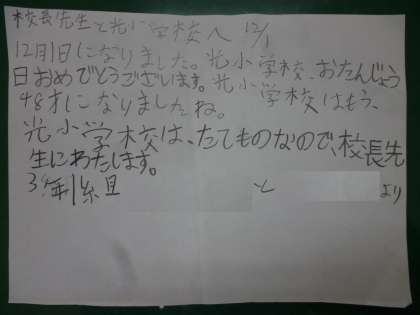 校長先生と光小学校へ 12/1
12月1日になりました。光小学校、おたんじょう
日おめでとうございます。光小学校はもう、
48才になりましたね。
光小学校は、たてものなので、校長先
生にわたします。
3年1組
と
より